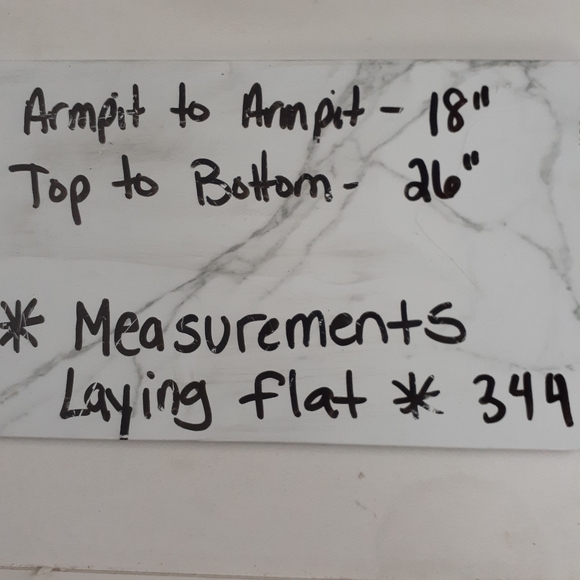 Armpit to Armpit - 18"
Top to Bottom - 26"
* Measurements
Laying flat * 344